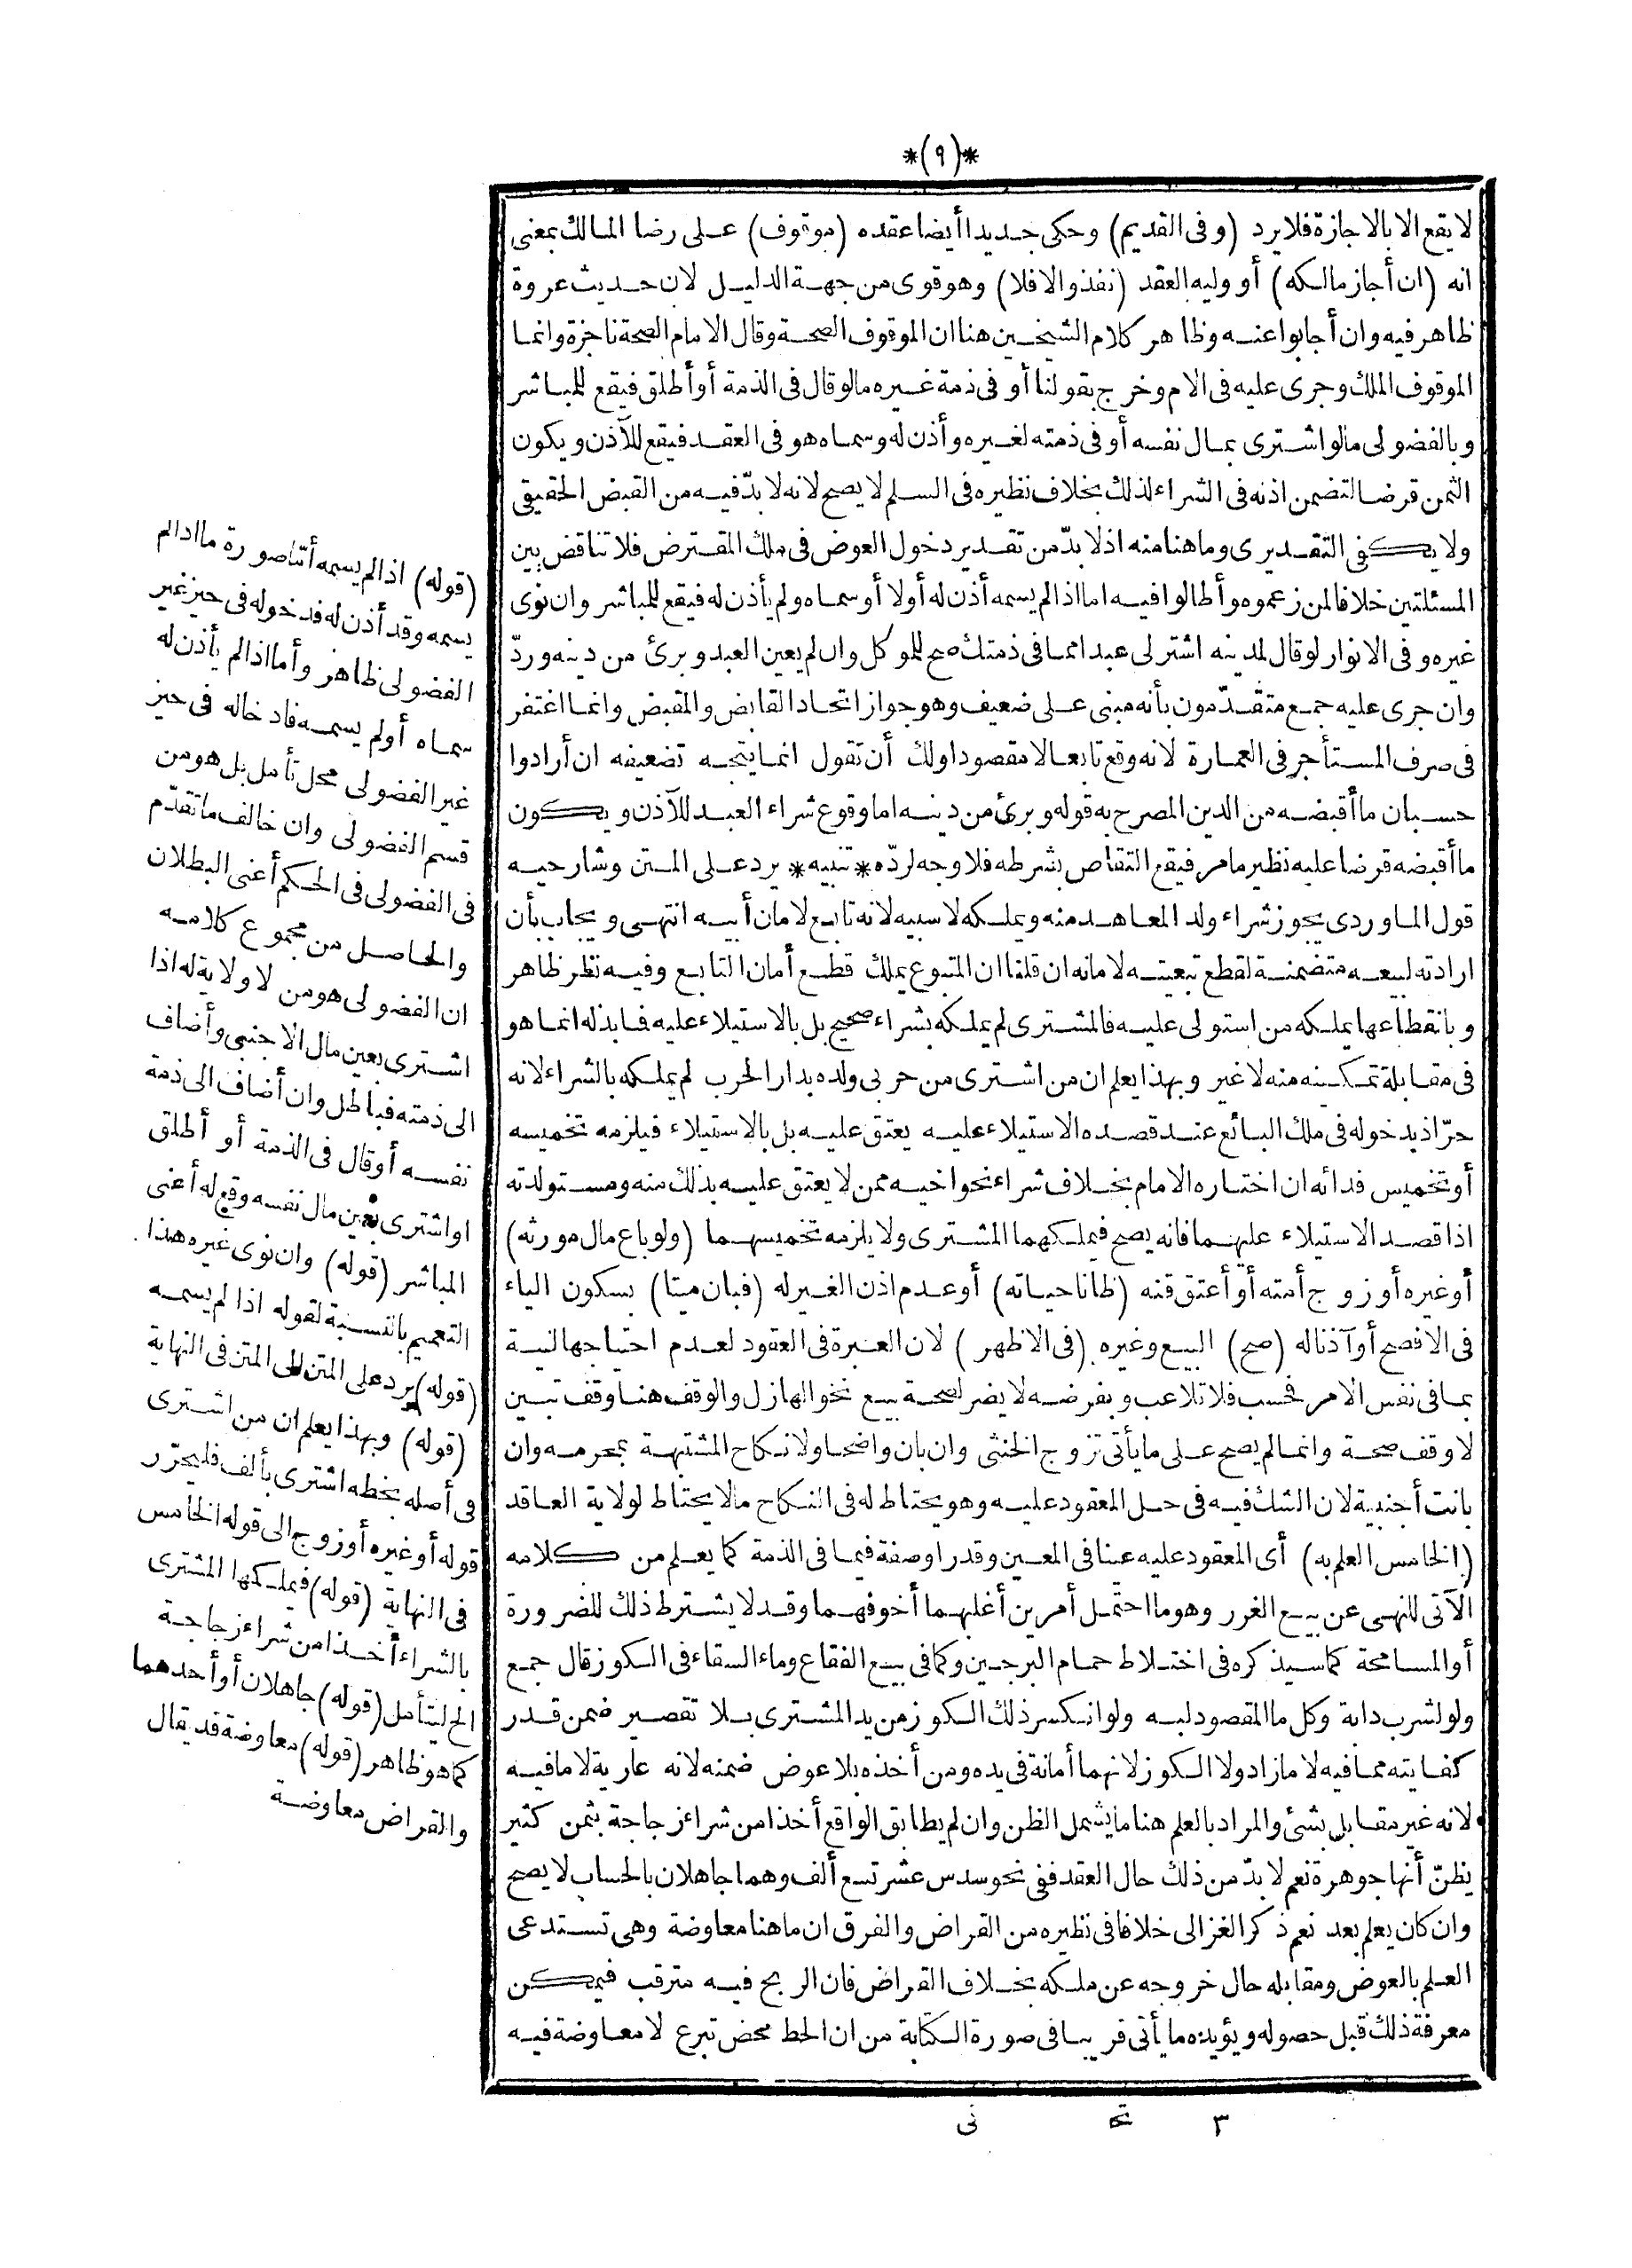 *(٩)*
لا يقع الا بالاجازة فلا يرد (وفى القديم) وحكى جديدا أيضا عقده (موقوف) على رضا المالك بمعنى
انه (ان أجاز مالكه) أو وليه العقد (نفذ والا فلا) وهو قوى من جهة الدليل لان حديث عروة
ظاهر فيه وان أجابوا عنه وظاهر كلام الشيخين هنا ان الموقوف الصحة وقال الامام الصحة ناجزة وانما
الموقوف الملك وجرى عليه فى الام وخرج بقولنا أو فى ذمة غيره ما لو قال فى الذمة أو أطلق فيقع للمباشر
وبالفضولى ما لو اشترى بمال نفسه أو فى ذمته لغيره وأذن له وسماه هو فى العقد فيقع للآذن ويكون
الثمن قرضا لتضمن اذنه فى الشراء لذلك بخلاف نظيره فى السلم لا يصح لانه لا بدّ فيه من القبض الحقيقى
ولا يكفى التقديرى وما هنا منه اذ لا بدّ من تقدير دخول العوض فى ملك المقترض فلا تناقض بين
المسئلتين خلافا لمن زعموه وأطالوا فيه اما اذا لم يسمه أذن له أولا أو سماه ولم يأذن له فيقع للمباشر وان نوى
غيره وفى الانوار لو قال لمدينه اشتر لى عبدا مما فى ذمتك صح للموكل وان لم يعين العبد وبرئ من دينه وردّ
وان جرى عليه جمع متقدّمون بأنه مبنى على ضعيف وهو جواز اتحاد القابض والمقبض وانما اغتفر
فى صرف المستأجر فى العمارة لانه وقع تابعا لا مقصودا ولك أن تقول انما يتجه تضعيفه ان أرادوا
حسبان ما أقبضه من الدين المصرح به قوله وبرئ من دينه اما وقوع شراء العبد للآذن ويكون
ما أقبضه قرضا عليه نظير ما مر فيقع التقاص بشرطه فلا وجه لردّه *تنبيه* يرد على المتن وشارحيه
قول الماوردى يجوز شراء ولد المعاهد منه ويملكه لا سبيه لانه تابع لامان أبيه انتهى ويجاب بأن
ارادته لبيعه متضمنة لقطع تبعيته لامانه ان قلنا ان المتبوع يملك قطع أمان التابع وفيه نظر ظاهر
وبانقطاعها يملكه من استولى عليه فالمشترى لم يملكه بشراء صحيح بل بالاستيلاء عليه فما بذله انما هو
فى مقابلة تمكينه منه لا غير وبهذا يعلم ان من اشترى من حربى ولده بدار الحرب لم يملكه بالشراء لانه
حرّ اذ بدخوله فى ملك البائع عند قصده الاستيلاء عليه يعتق عليه بل بالاستيلاء فيلزمه تخميسه
أو تخميس فدائه ان اختاره الامام بخلاف شراء نحو اخيه ممن لا يعتق عليه بذلك منه ومستولدته
اذا قصد الاستيلاء عليهما فانه يصح فيملكهما المشترى ولا يلزمه تخميسهما (ولو باع مال مورثه)
أو غيره أو زوج أمته أو أعتق قنه (ظانا حياته) أو عدم اذن الغير له (فبان ميتا) بسكون الياء
فى الافصح أو آذنا له (صح) البيع وغيره (فى الاظهر) لان العبرة فى العقود لعدم احتياجها لنية
بما فى نفس الامر فحسب فلا تلاعب وبفرضه لا يضر لصحة بيع نحو الهازل والوقف هنا وقف تبين
لا وقف صحة وانما لم يصح على ما يأتى تزوج الخنثى وان بان واضحا ولا نكاح المشتبهة بمحرمه وان
بانت أجنبية لان الشك فيه فى حل المعقود عليه وهو يحتاط له فى النكاح ما لا يحتاط لولاية العاقد
(الخامس العلم به) أى المعقود عليه عينا فى المعين وقدرا وصفة فيما فى الذمة كما يعلم من كلامه
الآتى للنهى عن بيع الغرر وهو ما احتمل أمرين أغلبهما أخوفهما وقد لا يشترط ذلك للضرورة
أو المسامحة كما سيذكره فى اختلاط حمام البرجين وكما فى بيع الفقاع وماء السقاء فى الكوز قال جمع
ولو لشرب دابة وكل ما المقصود لبه ولو انكسر ذلك الكوز من يد المشترى بلا تقصير ضمن قدر
كفايته مما فيه لا ما زاد ولا الكوز لانهما أمانة فى يده ومن أخذه بلا عوض ضمنه لانه عارية لا ما فيه
لانه غير مقابل بشئ والمراد بالعلم هنا ما يشمل الظن وان لم يطابق الواقع أخذا من شراء زجاجة بثمن كثير
يظنّ أنها جوهرة نعم لا بدّ من ذلك حال العقد ففى نحو سدس عشر تسع ألف وهما جاهلان بالحساب لا يصح
وان كان يعلم بعد نعم ذكر الغزالى خلافا فى نظيره من القراض والفرق ان ما هنا معاوضة وهى تستدعى
العلم بالعوض ومقابله حال خروجه عن ملكه بخلاف القراض فان الربح فيه مترقب فيمكن
معرفة ذلك قبل حصوله ويؤيده ما يأتى قريبا فى صورة الكتابة من ان الحط محض تبرع لا معاوضة فيه
(قوله) اذا لم يسمه أمّا صورة ما اذا لم
يسمه وقد أذن له فدخوله فى حيز غير
الفضولى ظاهر وأما اذا لم يأذن له
سماه أو لم يسمه فادخاله فى حيز
غير الفضولى محل تأمل بل هو من
قسم الفضولى وان خالف ما تقدّم
فى الفضولى فى الحكم أعنى البطلان
والحاصل من مجموع كلامه
ان الفضولى هو من لا ولاية له اذا
اشترى بعين مال الاجنبى وأضاف
الى ذمته فباطل وان أضاف الى ذمة
نفسه أو قال فى الذمة أو أطلق
او اشترى بعين مال نفسه وقع له أعنى
المباشر (قوله) وان نوى غيره هذا
التعميم بالنسبة لقوله اذا لم يسمه
(قوله) يرد على المتن الى المتن فى النهاية
(قوله) وبهذا يعلم ان من اشترى
فى أصله بخطه اشترى بألف فليحرّر
قوله أو غيره أو زوج الى قوله الخامس
فى النهاية (قوله) فيملكها المشترى
بالشراء أخذا من شراء زجاجة
الخ ليتأمل (قوله) جاهلان أو أحدهما
كما هو ظاهر (قوله) معاوضة قد يقال
والقراض معاوضة
٣ تحـ نى